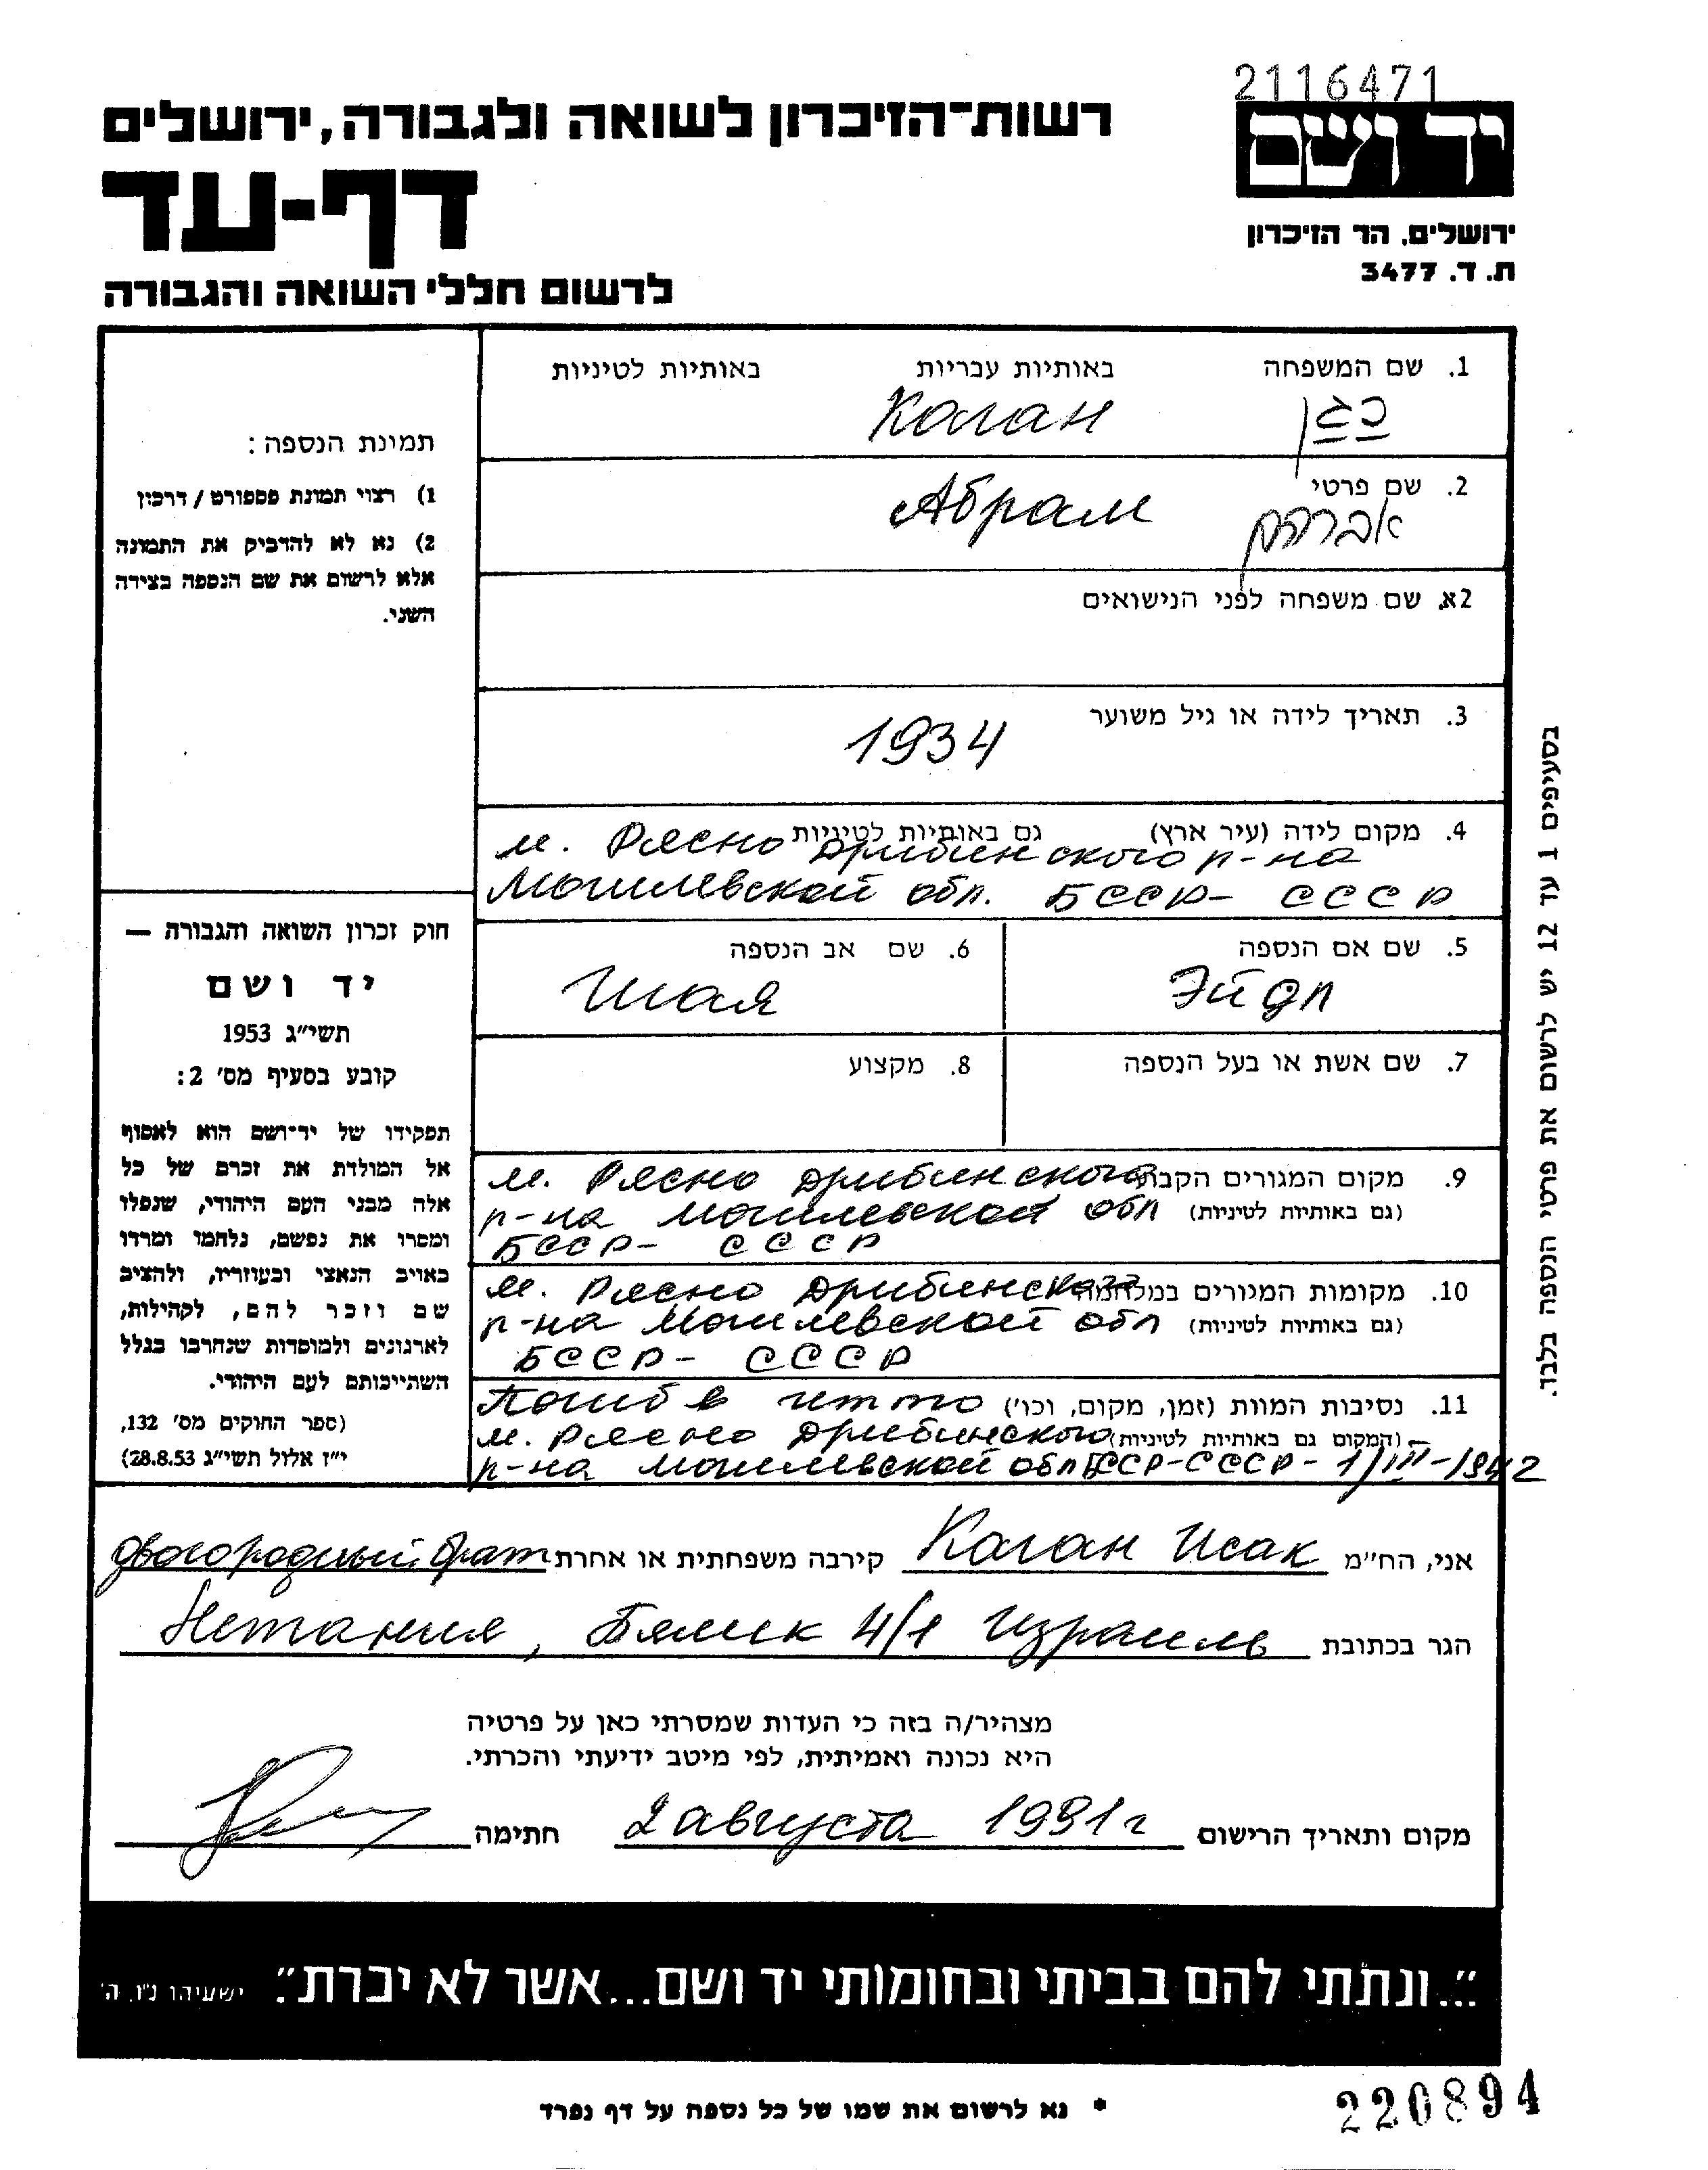 2116471
יד ושם
רשות־הזיכרון לשואה ולגבורה, ירושלים
דף-עד
לרשום חללי השואה והגבורה
ירושלים, הר הזיכרון
ת. ד. 3477
1. שם המשפחה באותיות עבריות באותיות לטיניות
כגן Коган
2. שם פרטי
אברהם Абрам
2א. שם משפחה לפני הנישואים
3. תאריך לידה או גיל משוער
1934
4. מקום לידה (עיר ארץ) גם באותיות לטיניות
м. Рясно Дрибинского р-на
Могилевской обл. БССР- СССР
5. שם אם הנספה
Эйдл
6. שם אב הנספה
Шая
7. שם אשת או בעל הנספה
8. מקצוע
9. מקום המגורים הקבוע
(גם באותיות לטיניות)
м. Рясно Дрибинского
р-на Могилевской обл
БССР- СССР
10. מקומות המגורים במלחמה
(גם באותיות לטיניות)
м. Рясно Дрибинского
р-на Могилевской обл
БССР- СССР
11. נסיבות המוות (זמן, מקום, וכו')
(המקום גם באותיות לטיניות)
Погиб в гетто
м. Рясно Дрибинского
р-на Могилевской обл БССР-СССР- 1/III-1942
תמונת הנספה:
1) רצוי תמונת פספורט / דרכון
2) נא לא להדביק את התמונה
אלא לרשום את שם הנספה בצידה
השני.
חוק זכרון השואה והגבורה —
יד ושם
תשי"ג 1953
קובע בסעיף מס' 2:
תפקידו של יד־ושם הוא לאסוף
אל המולדת את זכרם של כל
אלה מבני העם היהודי, שנפלו
ומסרו את נפשם, נלחמו ומרדו
באויב הנאצי ובעוזריו, ולהציב
שם וזכר להם, לקהילות,
לארגונים ולמוסדות שנחרבו בגלל
השתייכותם לעם היהודי.
(ספר החוקים מס' 132,
י"ז אלול תשי"ג 28.8.53)
בסעיפים 1 עד 12 יש לרשום את פרטי הנספה בלבד.
אני, הח"מ Коган Исак קירבה משפחתית או אחרת двоюродный брат
הגר בכתובת Нетания, Бялик 4/1 Израиль
מצהיר/ה בזה כי העדות שמסרתי כאן על פרטיה
היא נכונה ואמיתית, לפי מיטב ידיעתי והכרתי.
מקום ותאריך הרישום 2 августа 1991г חתימה
"...ונתתי להם בביתי ובחומותי יד ושם...אשר לא יכרת". ישעיהו נ"ו, ה'
* נא לרשום את שמו של כל נספה על דף נפרד
220894